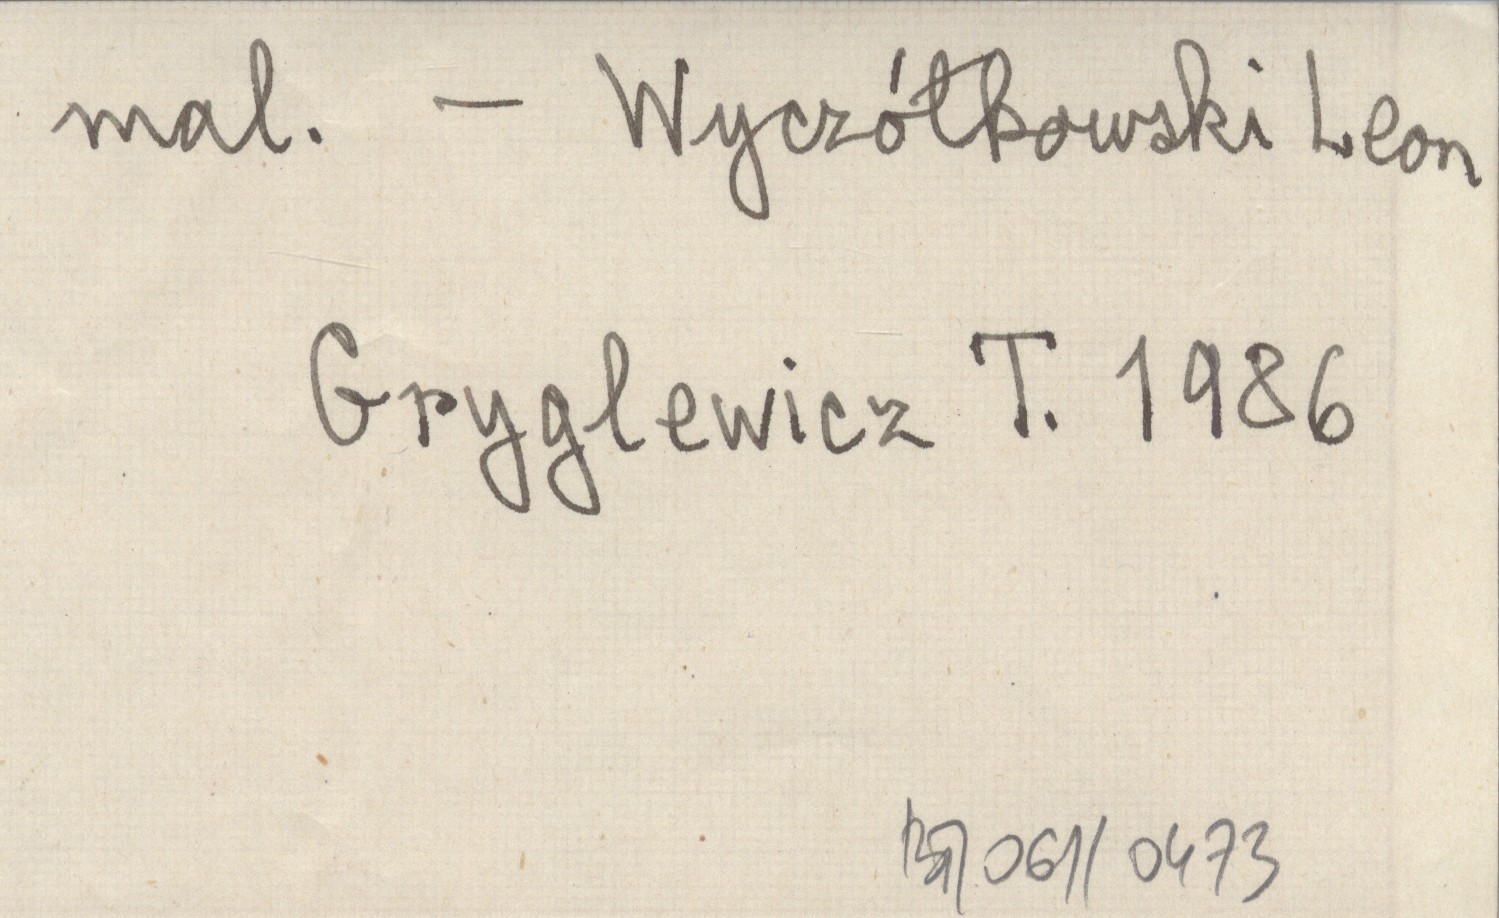 mal. — Wyczółkowski Leon
Gryglewicz T. 1986
061/ 0473